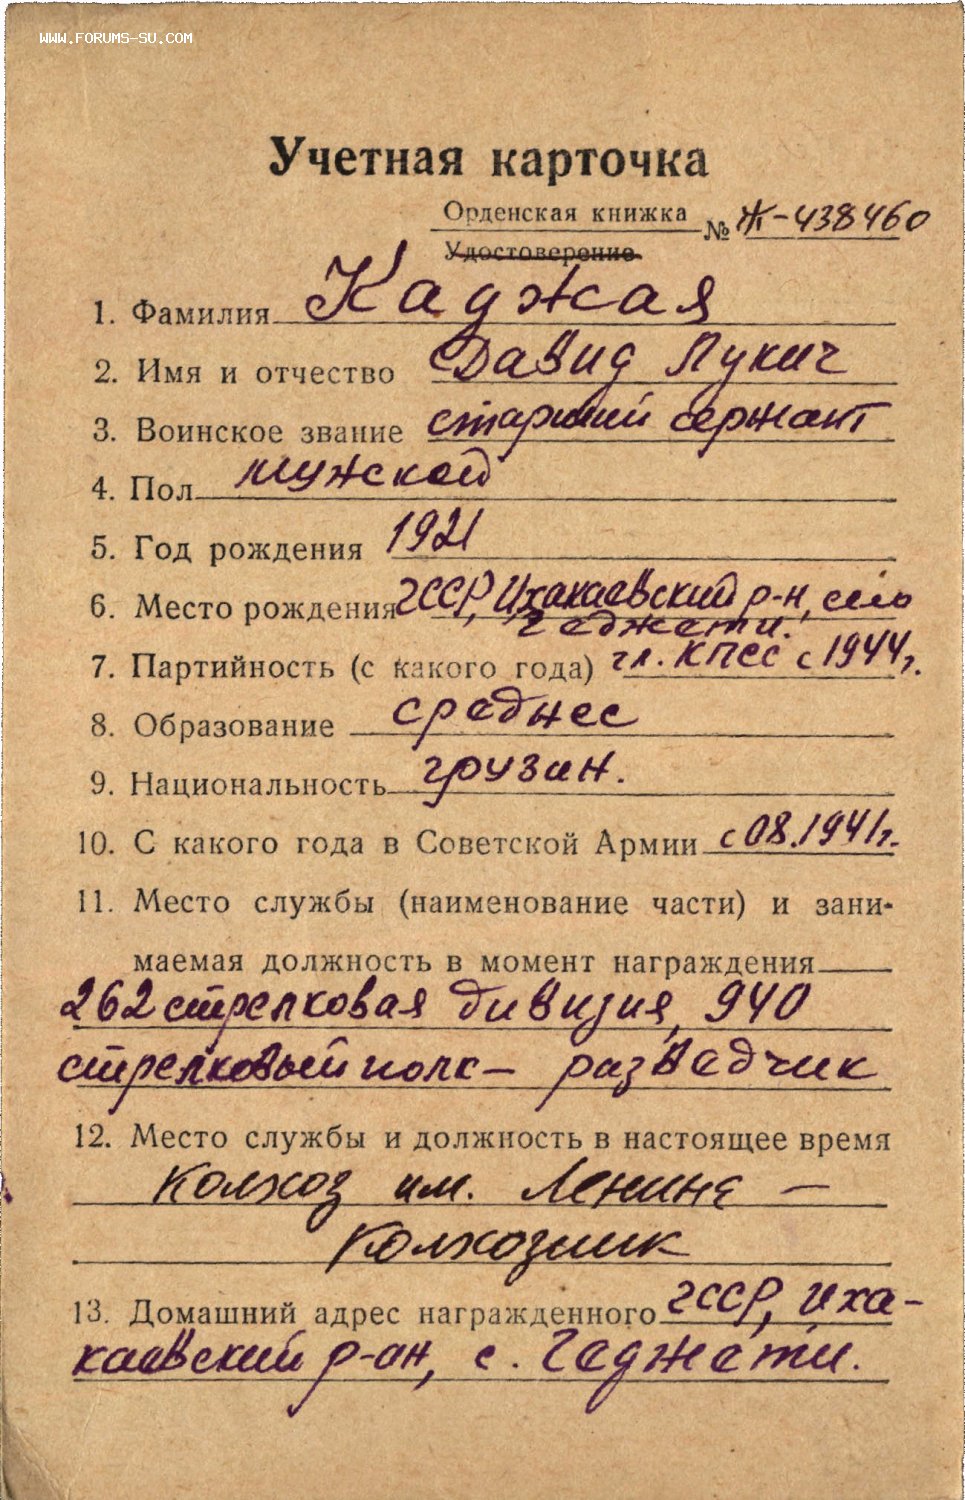 WWW.FORUMS-SU.COM
Учетная карточка
Орденская книжка № Ж-438460
Удостоверение
1. Фамилия Каджая
2. Имя и отчество Давид Лукич
3. Воинское звание старший сержант
4. Пол мужской
5. Год рождения 1921
6. Место рождения ГССР, Цхакаевский р-н, село
Геджети.
7. Партийность (с какого года) чл. КПСС с 1944 г.
8. Образование среднее
9. Национальность грузин.
10. С какого года в Советской Армии с 08.1941 г.
11. Место службы (наименование части) и зани-
маемая должность в момент награждения
262 стрелковая дивизия, 940
стрелковый полк – разведчик
12. Место службы и должность в настоящее время
Колхоз им. Ленина –
Колхозник
13. Домашний адрес награжденного ГССР, Цха-
каевский р-он, с. Геджети.